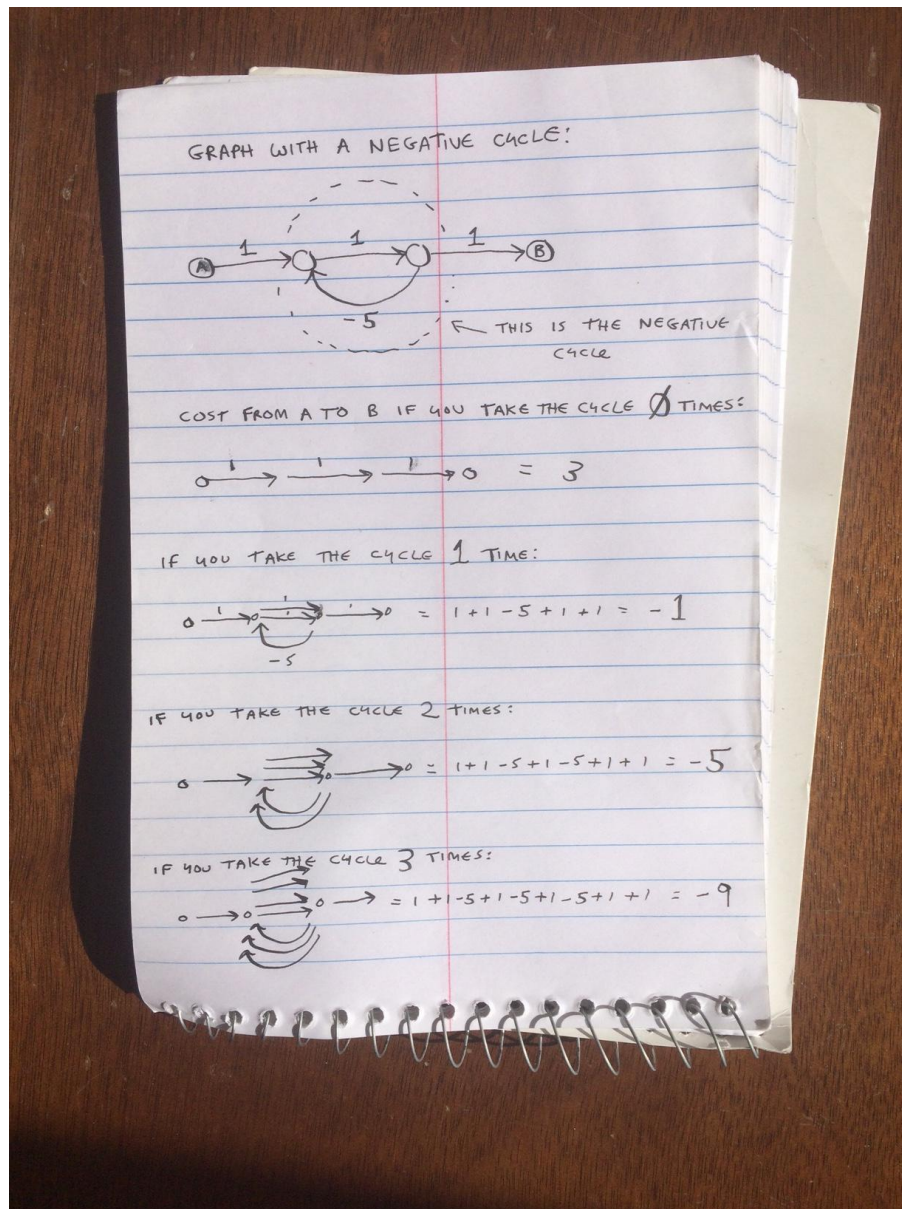 GRAPH WITH A NEGATIVE CYCLE:
1 1 1
A B
-5
THIS IS THE NEGATIVE
CYCLE
COST FROM A TO B IF YOU TAKE THE CYCLE 0 TIMES:
1 1 1
= 3
IF YOU TAKE THE CYCLE 1 TIME:
1 1 1 1
= 1+1-5+1+1 = -1
-5
IF YOU TAKE THE CYCLE 2 TIMES:
= 1+1-5+1-5+1+1 = -5
IF YOU TAKE THE CYCLE 3 TIMES:
= 1+1-5+1-5+1-5+1+1 = -9